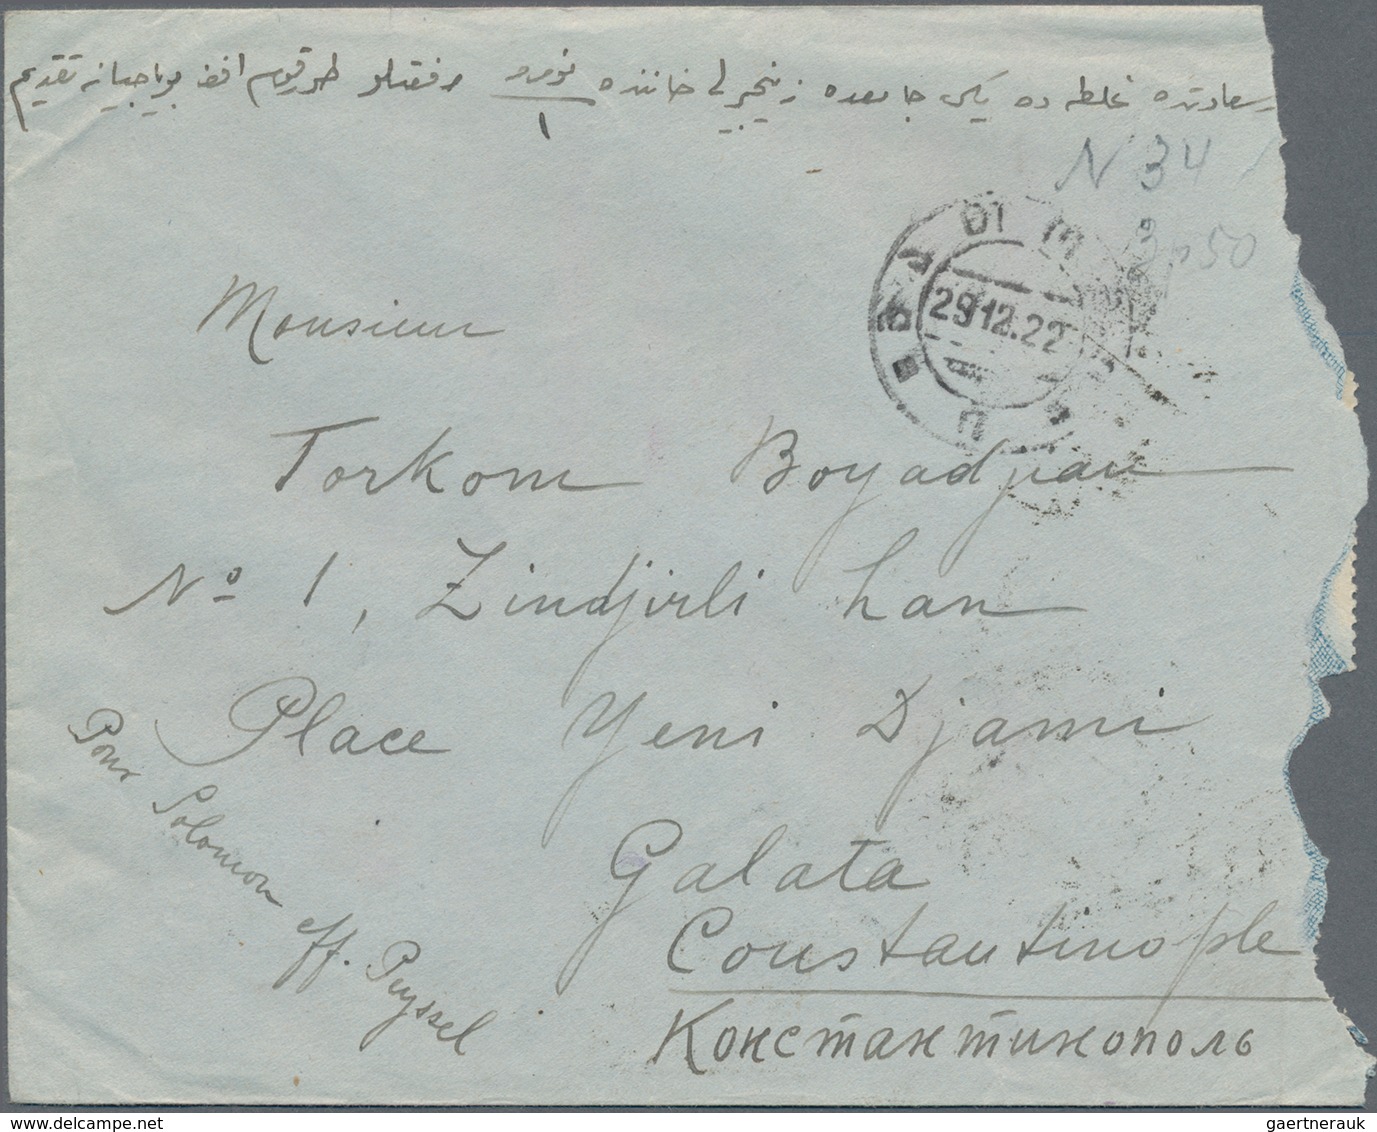 سعادتده غلطه ده یکی جامعده زنجیرلی خاننده نومرو ۱ رفعتلو طورقوم افن بویاجیانه تقدیم
N 34
50
29.12.22
Monsieur
Torkom Boyadjian
No 1, Zindjirli han
Place Yeni Djami
Galata
Constantinople
Константинополь
Pour Solomon eff. Puyssel
delcampe.net
gaertnerauk